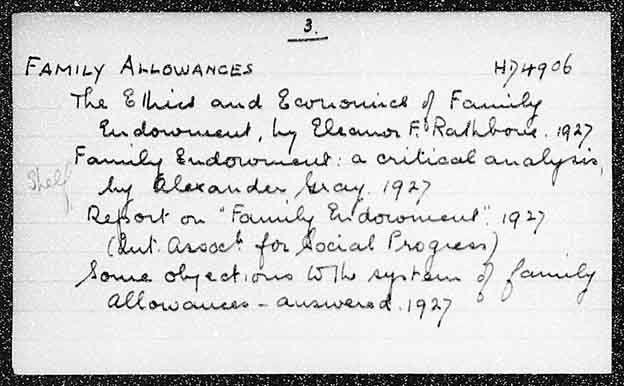 3.
FAMILY ALLOWANCES HD4906
The Ethics and Economics of Family
Endowment, by Eleanor F. Rathbone. 1927
Family Endowment: a critical analysis,
Shelf
by Alexander Gray. 1927
Report on "Family Endowment". 1927
(Int. Assoctn. for Social Progress)
Some objections to the system of family
allowances - answered. 1927